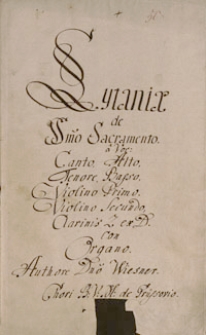 Lytaniæ
de
Smo Sacramento.
a Voc:
Canto, Alto,
Tenore, Basso.
Violino Primo.
Violino Secundo,
Clarinis 2 ex D.
Con
Organo.
Authore Dno Wiesner.
Chori B.V.M. de